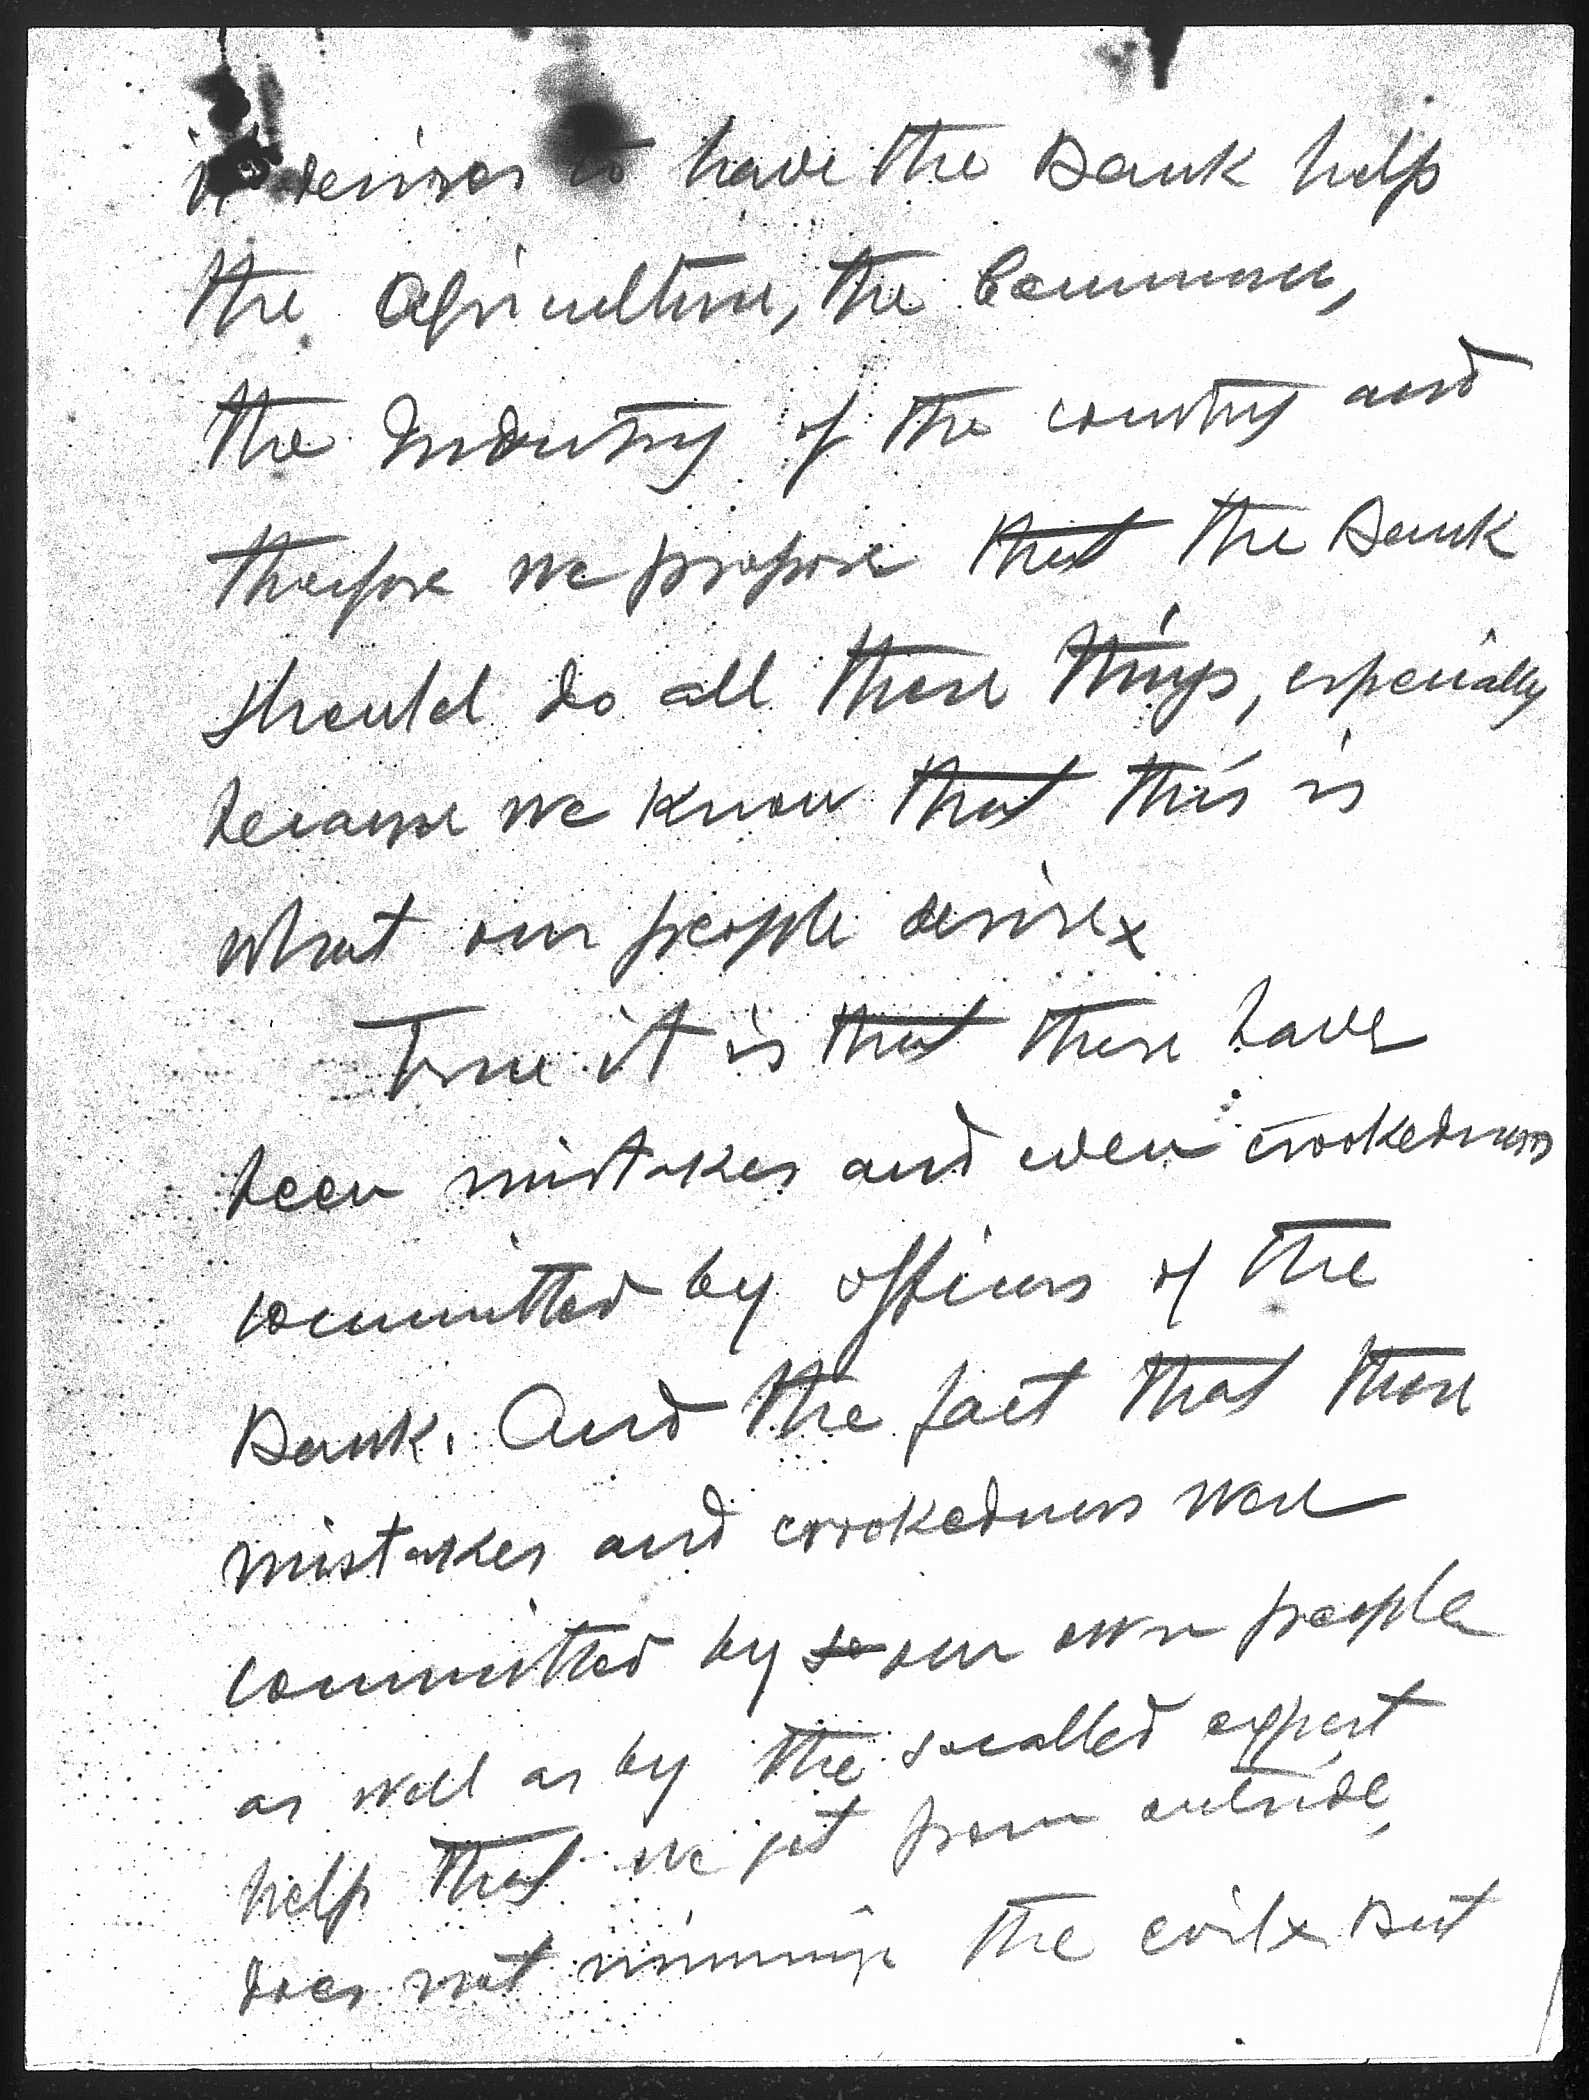 it desires to have the Bank help
the Agriculture, the Commerce,
the Industry of the country and
therefore we propose that the Bank
should do all these things, especially
because we know that this is
what our people desirex
True it is that there have
been mistakes and even crookedness
committed by officers of the
Bank. And the fact that these
mistakes and crookedness were
committed by so our own people
as well as by the socalled expert
help that we got from outside,
does not minimize the evilx But